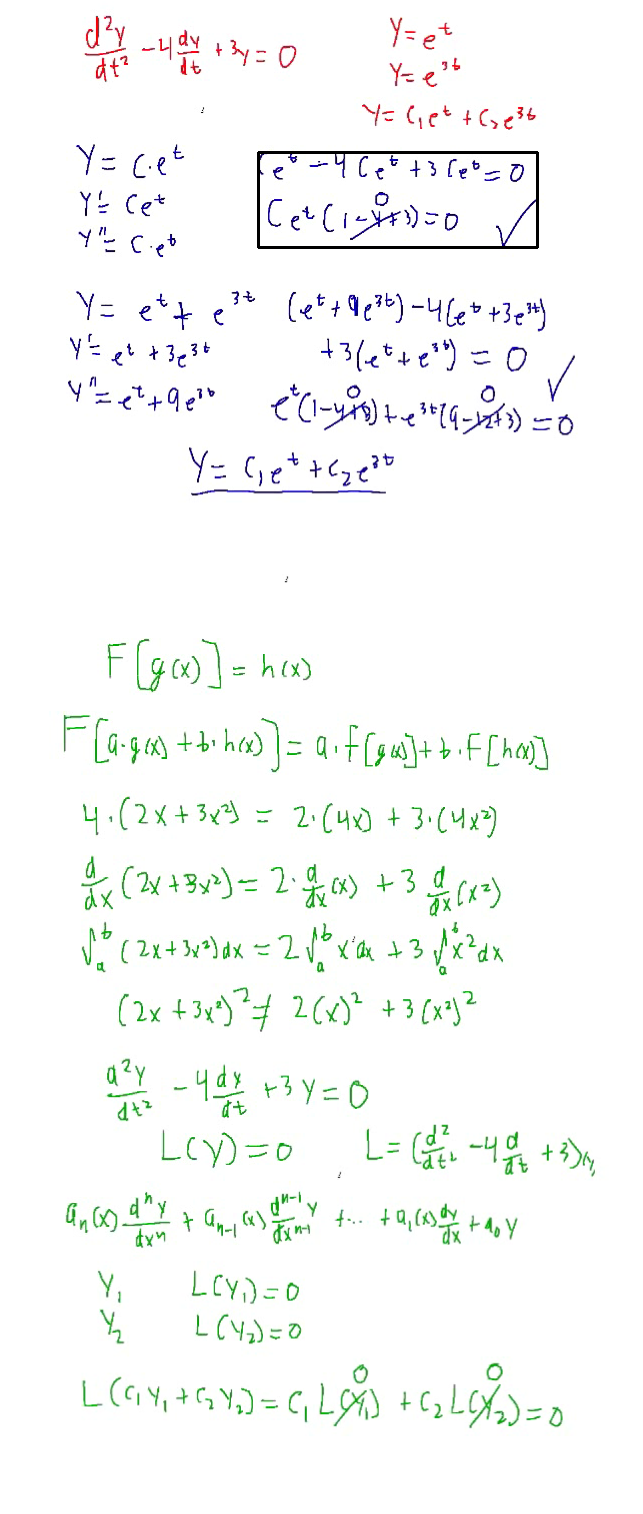 d²y/dt² - 4 dy/dt + 3y = 0
y = e^t
y = e^3t
y = c₁e^t + c₂e^3t
y = c·e^t
y' = ce^t
y'' = c·e^t
ce^t - 4ce^t + 3ce^t = 0
Ce^t(1-4+3) = 0 ✓
0
y = e^t + e^3t
y' = e^t + 3e^3t
y'' = e^t + 9e^3t
(e^t + 9e^3t) - 4(e^t + 3e^3t)
+3(e^t + e^3t) = 0 ✓
e^t(1-4+3) + e^3t(9-12+3) = 0
0 0
y = c₁e^t + c₂e^3t
F[g(x)] = h(x)
F[a·g(x) + b·h(x)] = a·F[g(x)] + b·F[h(x)]
4·(2x + 3x²) = 2·(4x) + 3·(4x²)
d/dx (2x + 3x²) = 2·d/dx (x) + 3 d/dx (x²)
∫_a^b (2x + 3x²)dx = 2∫_a^b x dx + 3∫_a^b x² dx
(2x + 3x²)² ≠ 2(x)² + 3(x²)²
d²y/dt² - 4 dy/dt + 3y = 0
L(y) = 0 L = (d²/dt² - 4 d/dt + 3)
aₙ(x) dⁿy/dxⁿ + aₙ₋₁(x) dⁿ⁻¹y/dxⁿ⁻¹ + ... + a₁(x) dy/dx + a₀y
y₁ L(y₁) = 0
y₂ L(y₂) = 0
L(c₁y₁ + c₂y₂) = c₁L(y₁) + c₂L(y₂) = 0
0 0